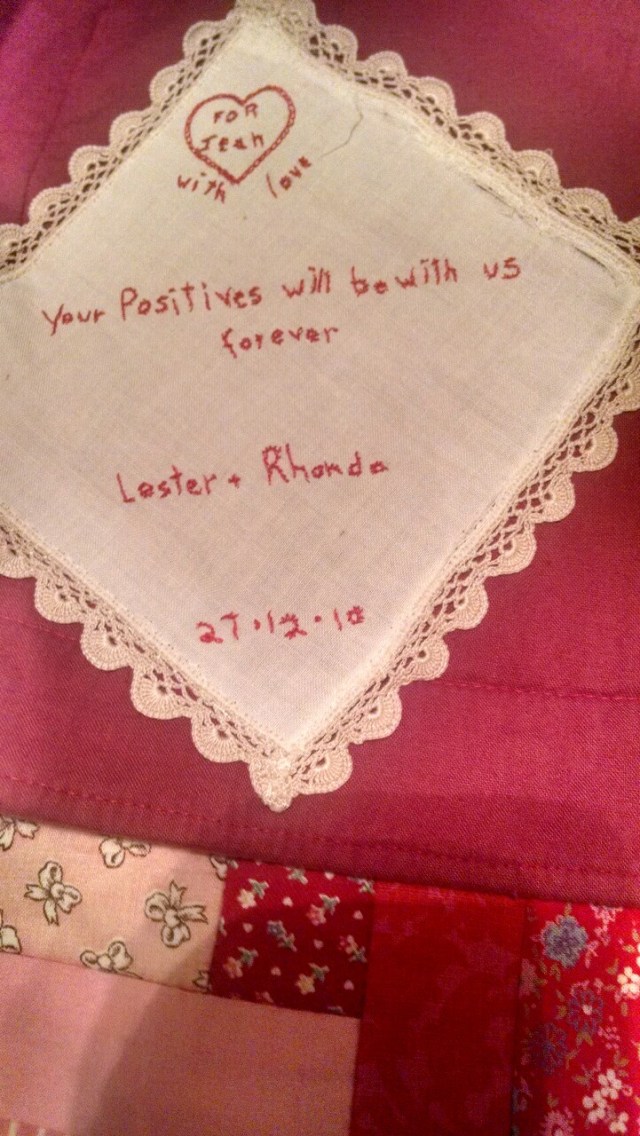 FOR
Jean
with love
Your Positives will be with us
forever
Lester + Rhonda
27.12.10